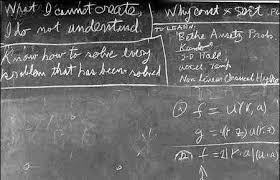 What I cannot create,
I do not understand.
Know how to solve every
problem that has been solved
Why const × sort
TO LEARN:
Bethe Ansatz Probs.
Kondo
2-D Hall
accel. Temp
Non Linear Classical Hydro
f = u(r, a)
g = (r z) u(r, z)
f = 2 |r·a| (u·a)